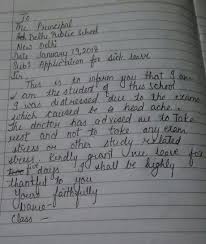 To
The Principal
Delhi Public School
New Delhi
Date January 19, 2018
Sub: Application for sick leave
Sir,
This is to inform you that I am
I am the student of this school
I was distressed due to the exams
which caused be a head ache.
The doctor has advised me to take
rest and not to take any exam
stress or other study related
stress. Kindly grant me leave for
days. I shall be highly
thankful to you
Yours faithfully
Name-
Class-